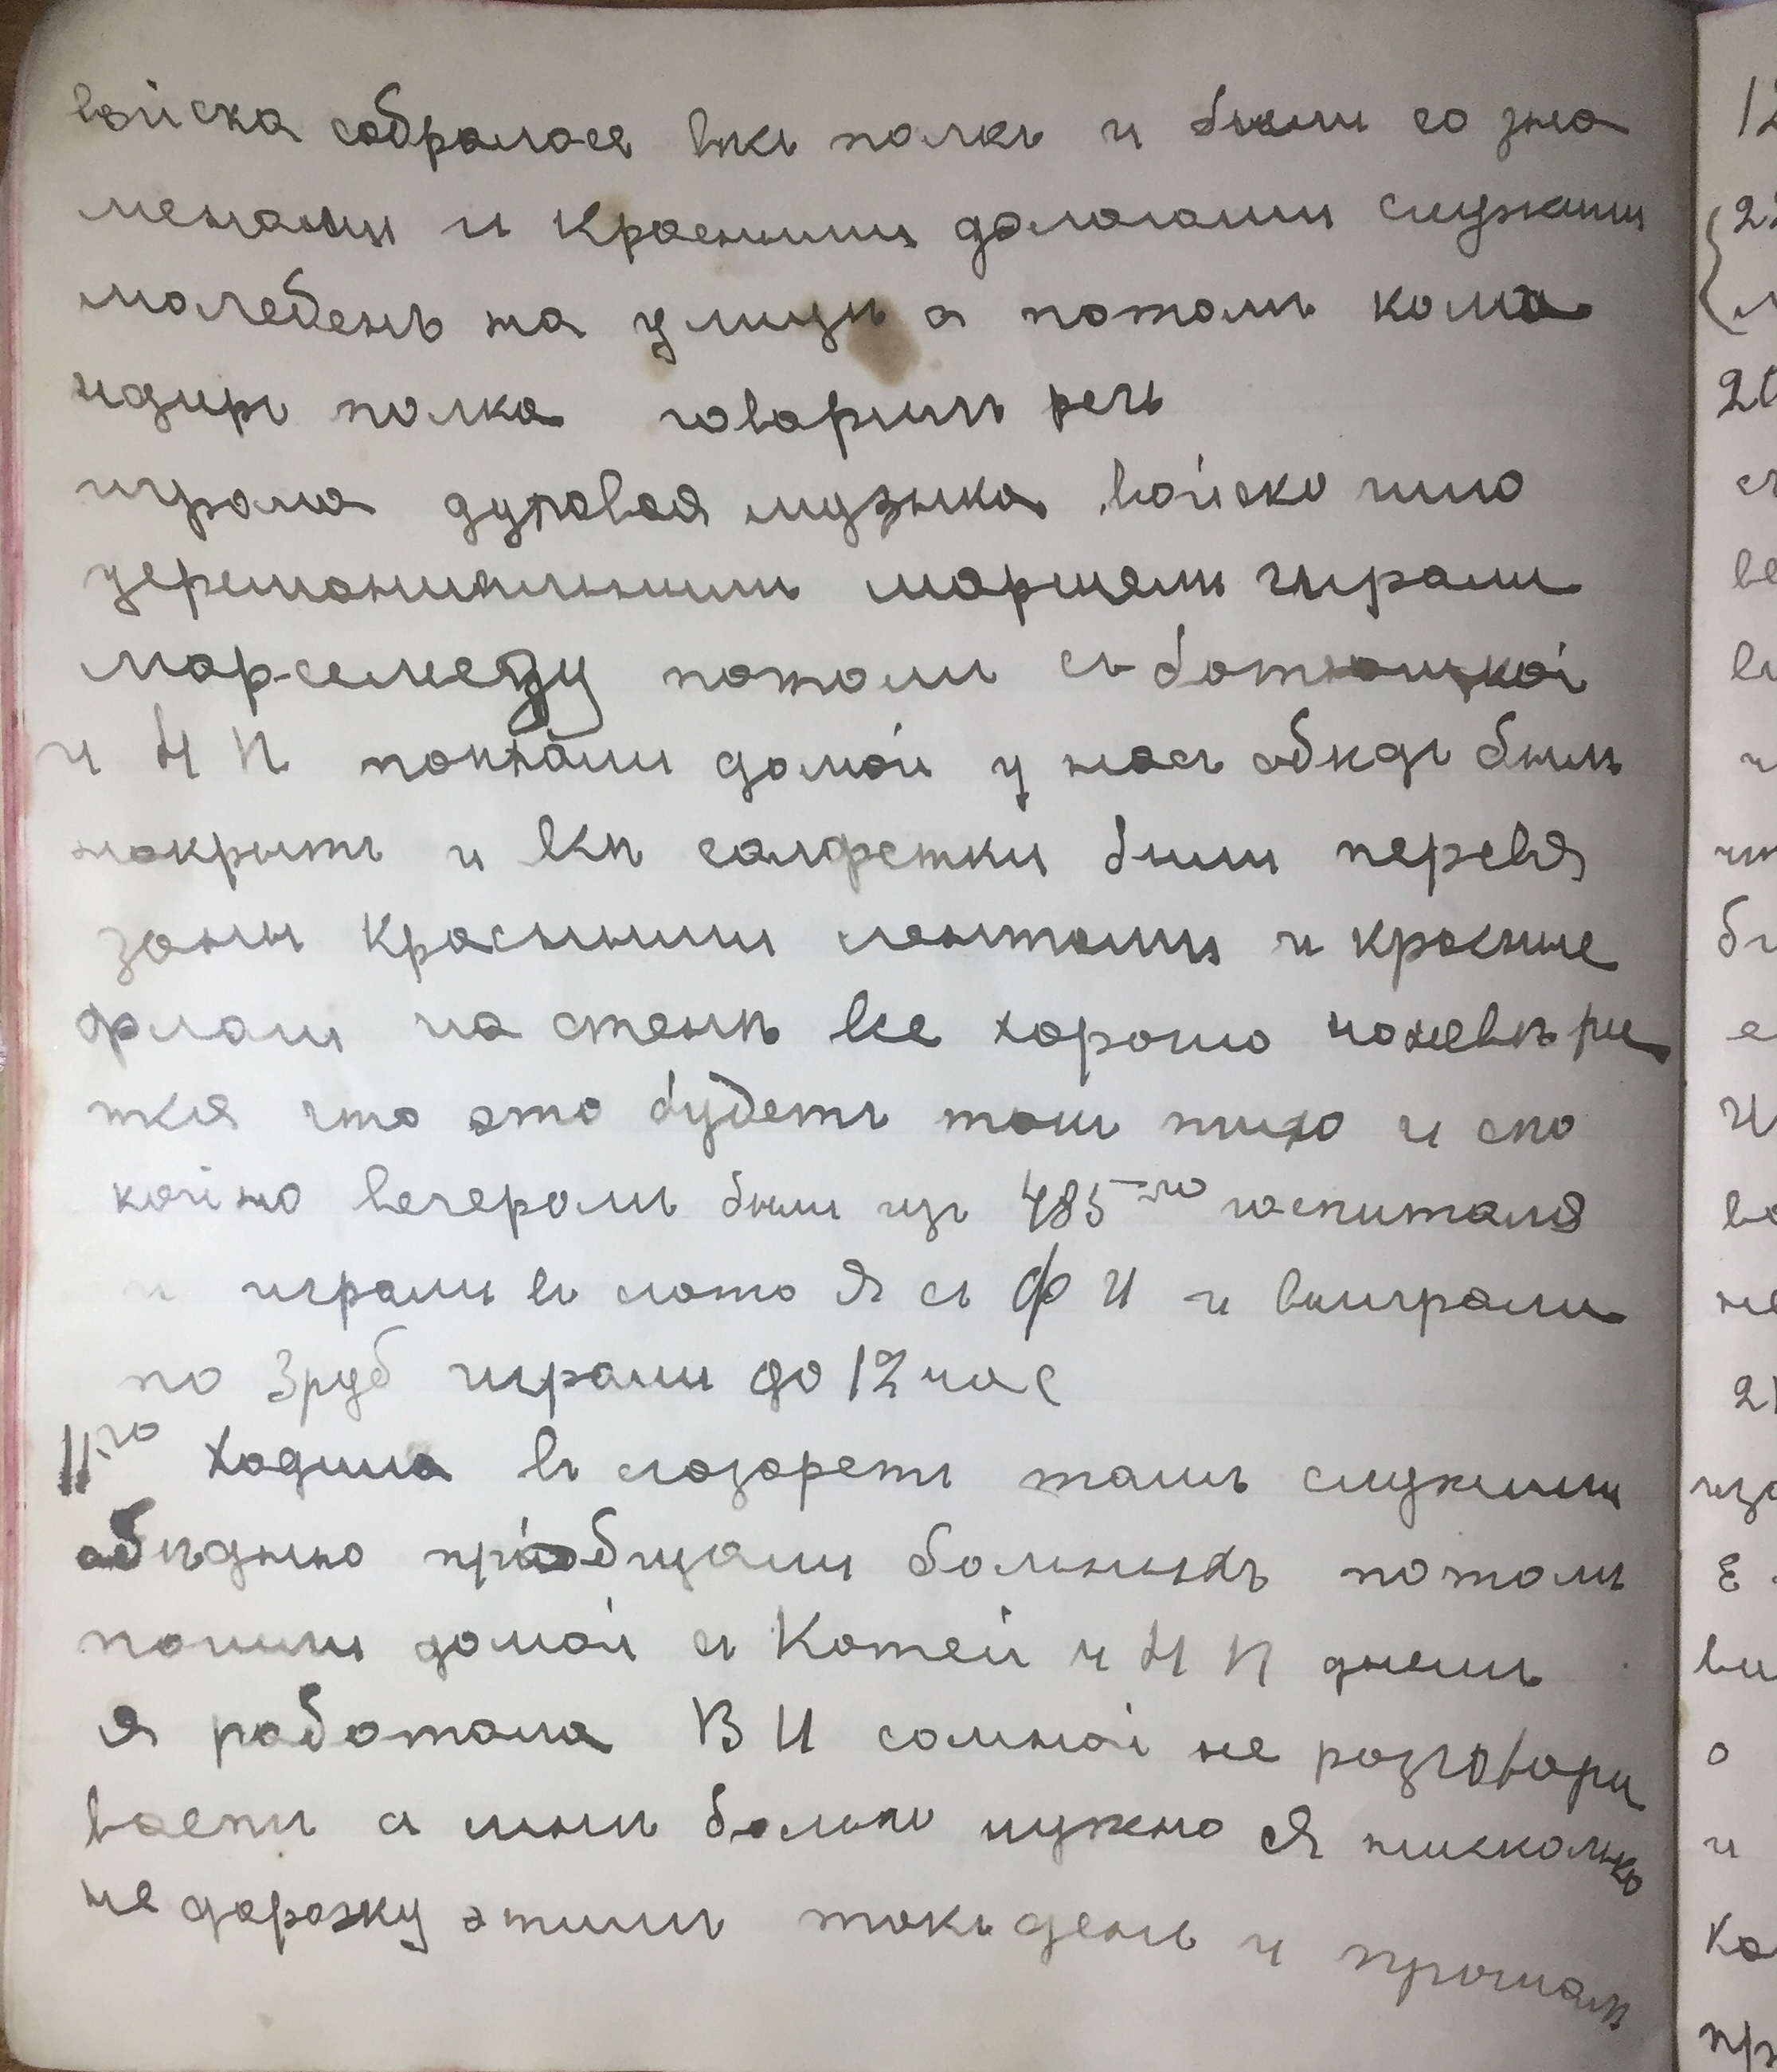 войска собралося всѣ полкъ и были со зна
менами и красными фалагами служили
молебенъ на улицѣ а потомъ кома
ндиръ полка говорилъ речь
играла духовая музыка войско шло
церемониальнымъ маршемъ играли
марселиезу потомъ съ батюшкой
и Н П поѣхали домой у насъ обѣдъ былъ
накрытъ и всѣ салфетки были перевя
заны красными лентами и красные
флаги на стенѣ все хорошо
что это будетъ такъ тихо и спо
койно вечеромъ были изъ 485-го госпиталя
и играли въ лото Я съ Ф И и выиграли
по 3 руб играли до 12 час
11го Ходила въ лазаретъ тамъ служили
обѣдню приобщали больныхъ потомъ
пошли домой съ Котей и Н П днемъ
я работала В И сомной не разговари
ваетъ а мнѣ больно нужно Я нисколько
не дорожу этимъ такъ день и прошолъ
12